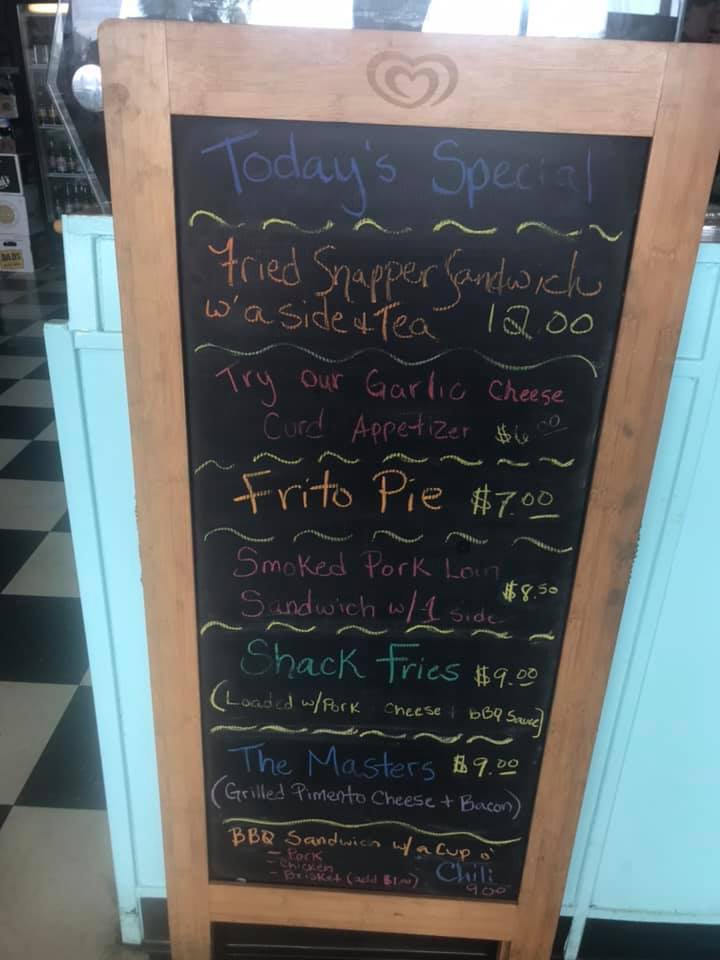 Today's Special
Fried Snapper Sandwich
w' a side + Tea 12.00
Try our Garlic Cheese
Curd Appetizer $6.00
Frito Pie $7.00
Smoked Pork Loin
$8.50
Sandwich w/1 side
Shack Fries $9.00
(Loaded w/Pork cheese + bBQ Sauce)
The Masters $9.00
(Grilled Pimento Cheese + Bacon)
BBQ Sandwich w/ a Cup o'
- Pork
- Chicken
- Brisket (add $1.00)
Chili
9.00